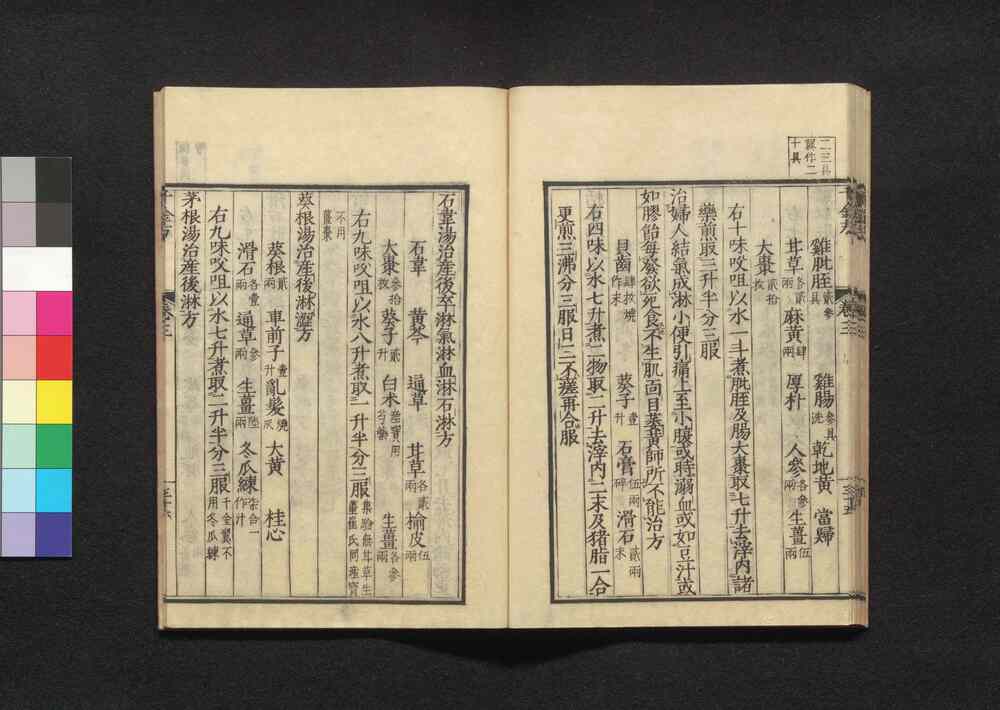 雞肶胵貳具 雞腸參具洗 乾地黃 當歸
甘草各貳兩 麻黃肆兩 厚朴 人參各參兩 生薑伍兩
大棗貳拾枚
右十味㕮咀以水一斗煮肶胵及腸大棗取七升去滓内諸
藥煎取三升半分三服
治婦人結氣成淋小便引痛上至小腹或時溺血或如豆汁或
如膠飴每發欲死食不生肌面目萎黃師所不能治方
貝齒肆枚燒作末 葵子壹升 石膏伍兩碎 滑石貳兩末
右四味以水七升煮二物取二升去滓内二末及猪脂一合
更煎三沸分三服日三不瘥再合服
石韋湯治產後卒淋氣淋血淋石淋方
石韋 黃芩 通草 甘草各貳兩 榆皮伍兩
大棗參拾枚 葵子貳升 白朮產寶用芍藥 生薑各參兩
右九味㕮咀以水八升煮取二升半分三服集驗無甘草生薑崔氏同產寶
不用薑棗
葵根湯治產後淋澀方
葵根貳兩 車前子壹升 亂髮燒灰 大黃 桂心
滑石各壹兩 通草參兩 生薑陸兩 冬瓜練柒合一作汁
右九味㕮咀以水七升煮取二升半分三服千金翼不用冬瓜練
茅根湯治產後淋方